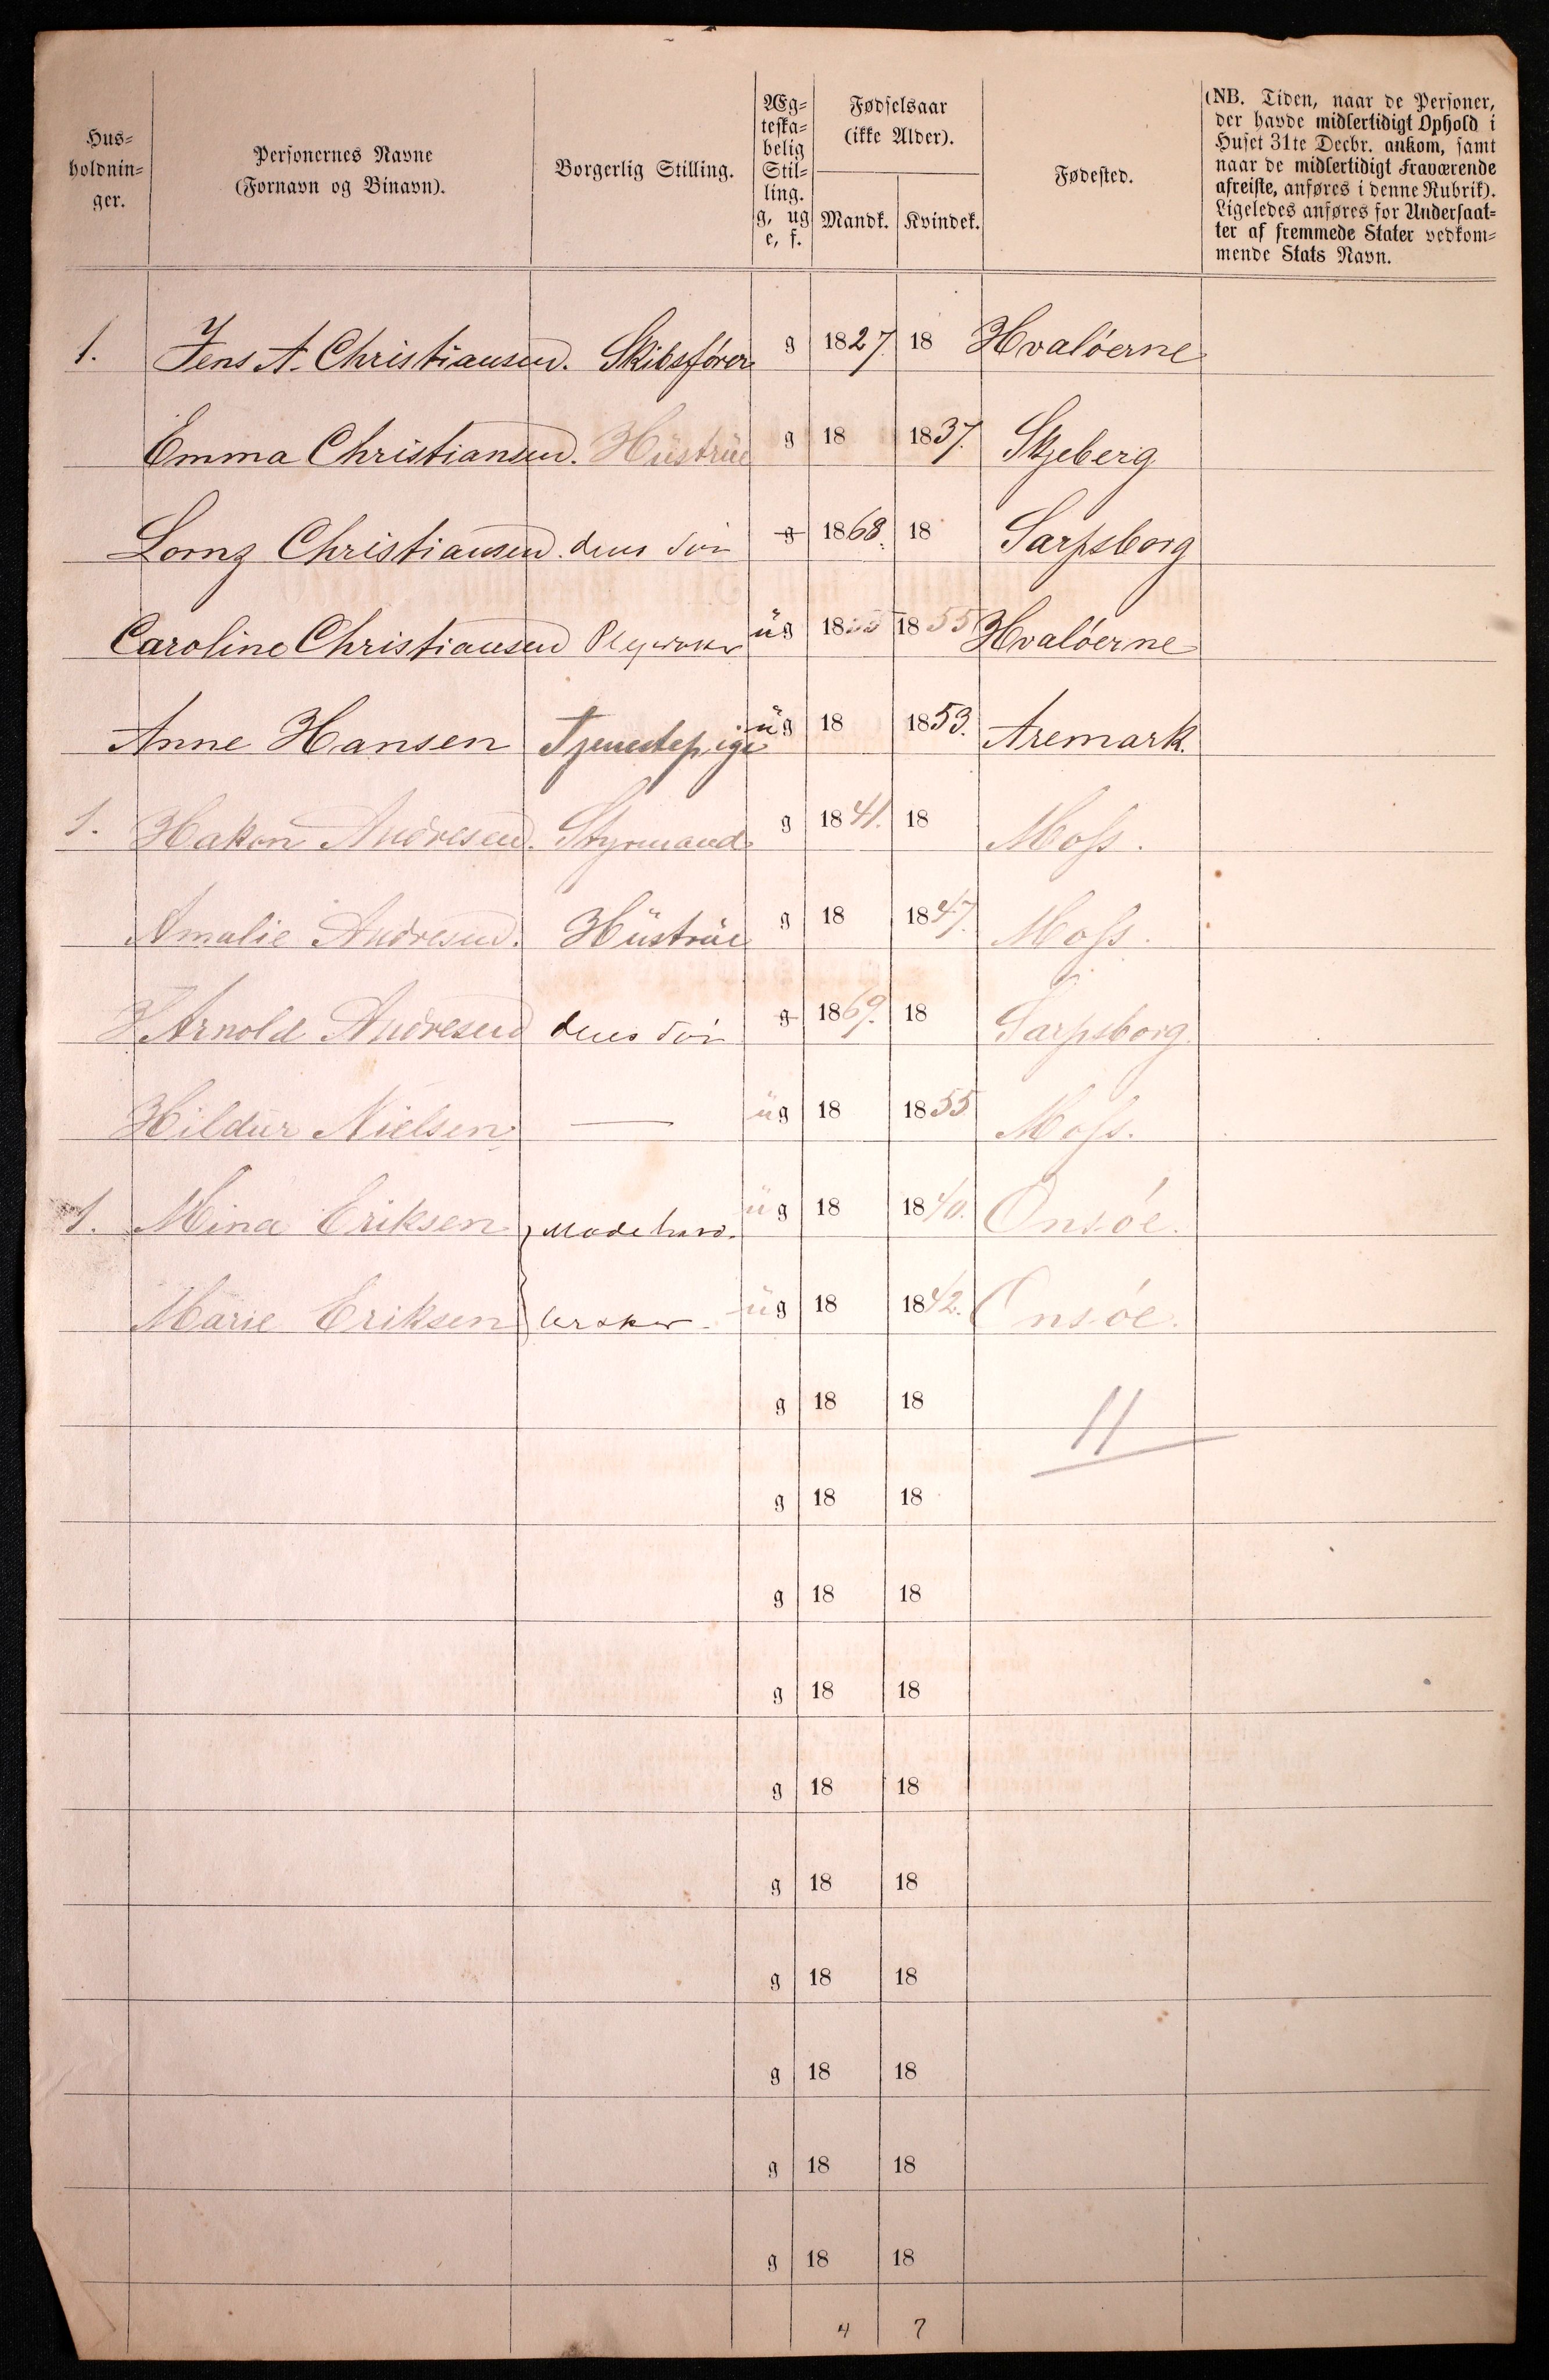 Hus-
holdnin-
ger.
Personernes Navne
(Fornavn og Binavn).
Borgerlig Stilling.
Æg-
teska-
belig
Stil-
ling.
g, ug
e, f.
Fødselsaar
(ikke Alder).
Mandk. Kvindek.
Fødested.
(NB. Tiden, naar de Personer,
der havde midlertidigt Ophold i
Huset 31te Decbr. ankom, samt
naar de midlertidigt Fraværende
afreiste, anføres i denne Rubrik).
Ligeledes anføres for Undersaat-
ter af fremmede Stater vedkom-
mende Stats Navn.
1. Jens A. Christiansen. Skibsfører g 1827. 18 Hvaløerne
Emma Christiansen. Hüstrüe g 18 1837. Skjeberg
Christiansen. deres Søn g 1868. 18 Sarpsborg
Caroline Christiansen üg 1855 1855 Hvaløerne
Anne Hansen Tjenestepige üg 18 1853. Aremark.
1. Hakon Andresen. Styrmand g 1841. 18 Moss.
Amalie Andresen. Hüstrüe g 18 1847. Moss.
H Arnold Andresen deres Søn g 1869. 18 Sarpsborg.
Hildür Nielsen. — üg 18 1855 Moss.
1. Mina Eriksen } Modehand. üg 18 1840. Onsøe.
Marie Eriksen } üg 18 1842. Onsøe.
g 18 18 11
g 18 18
g 18 18
g 18 18
g 18 18
g 18 18
g 18 18
g 18 18
g 18 18
g 18 18
4 7